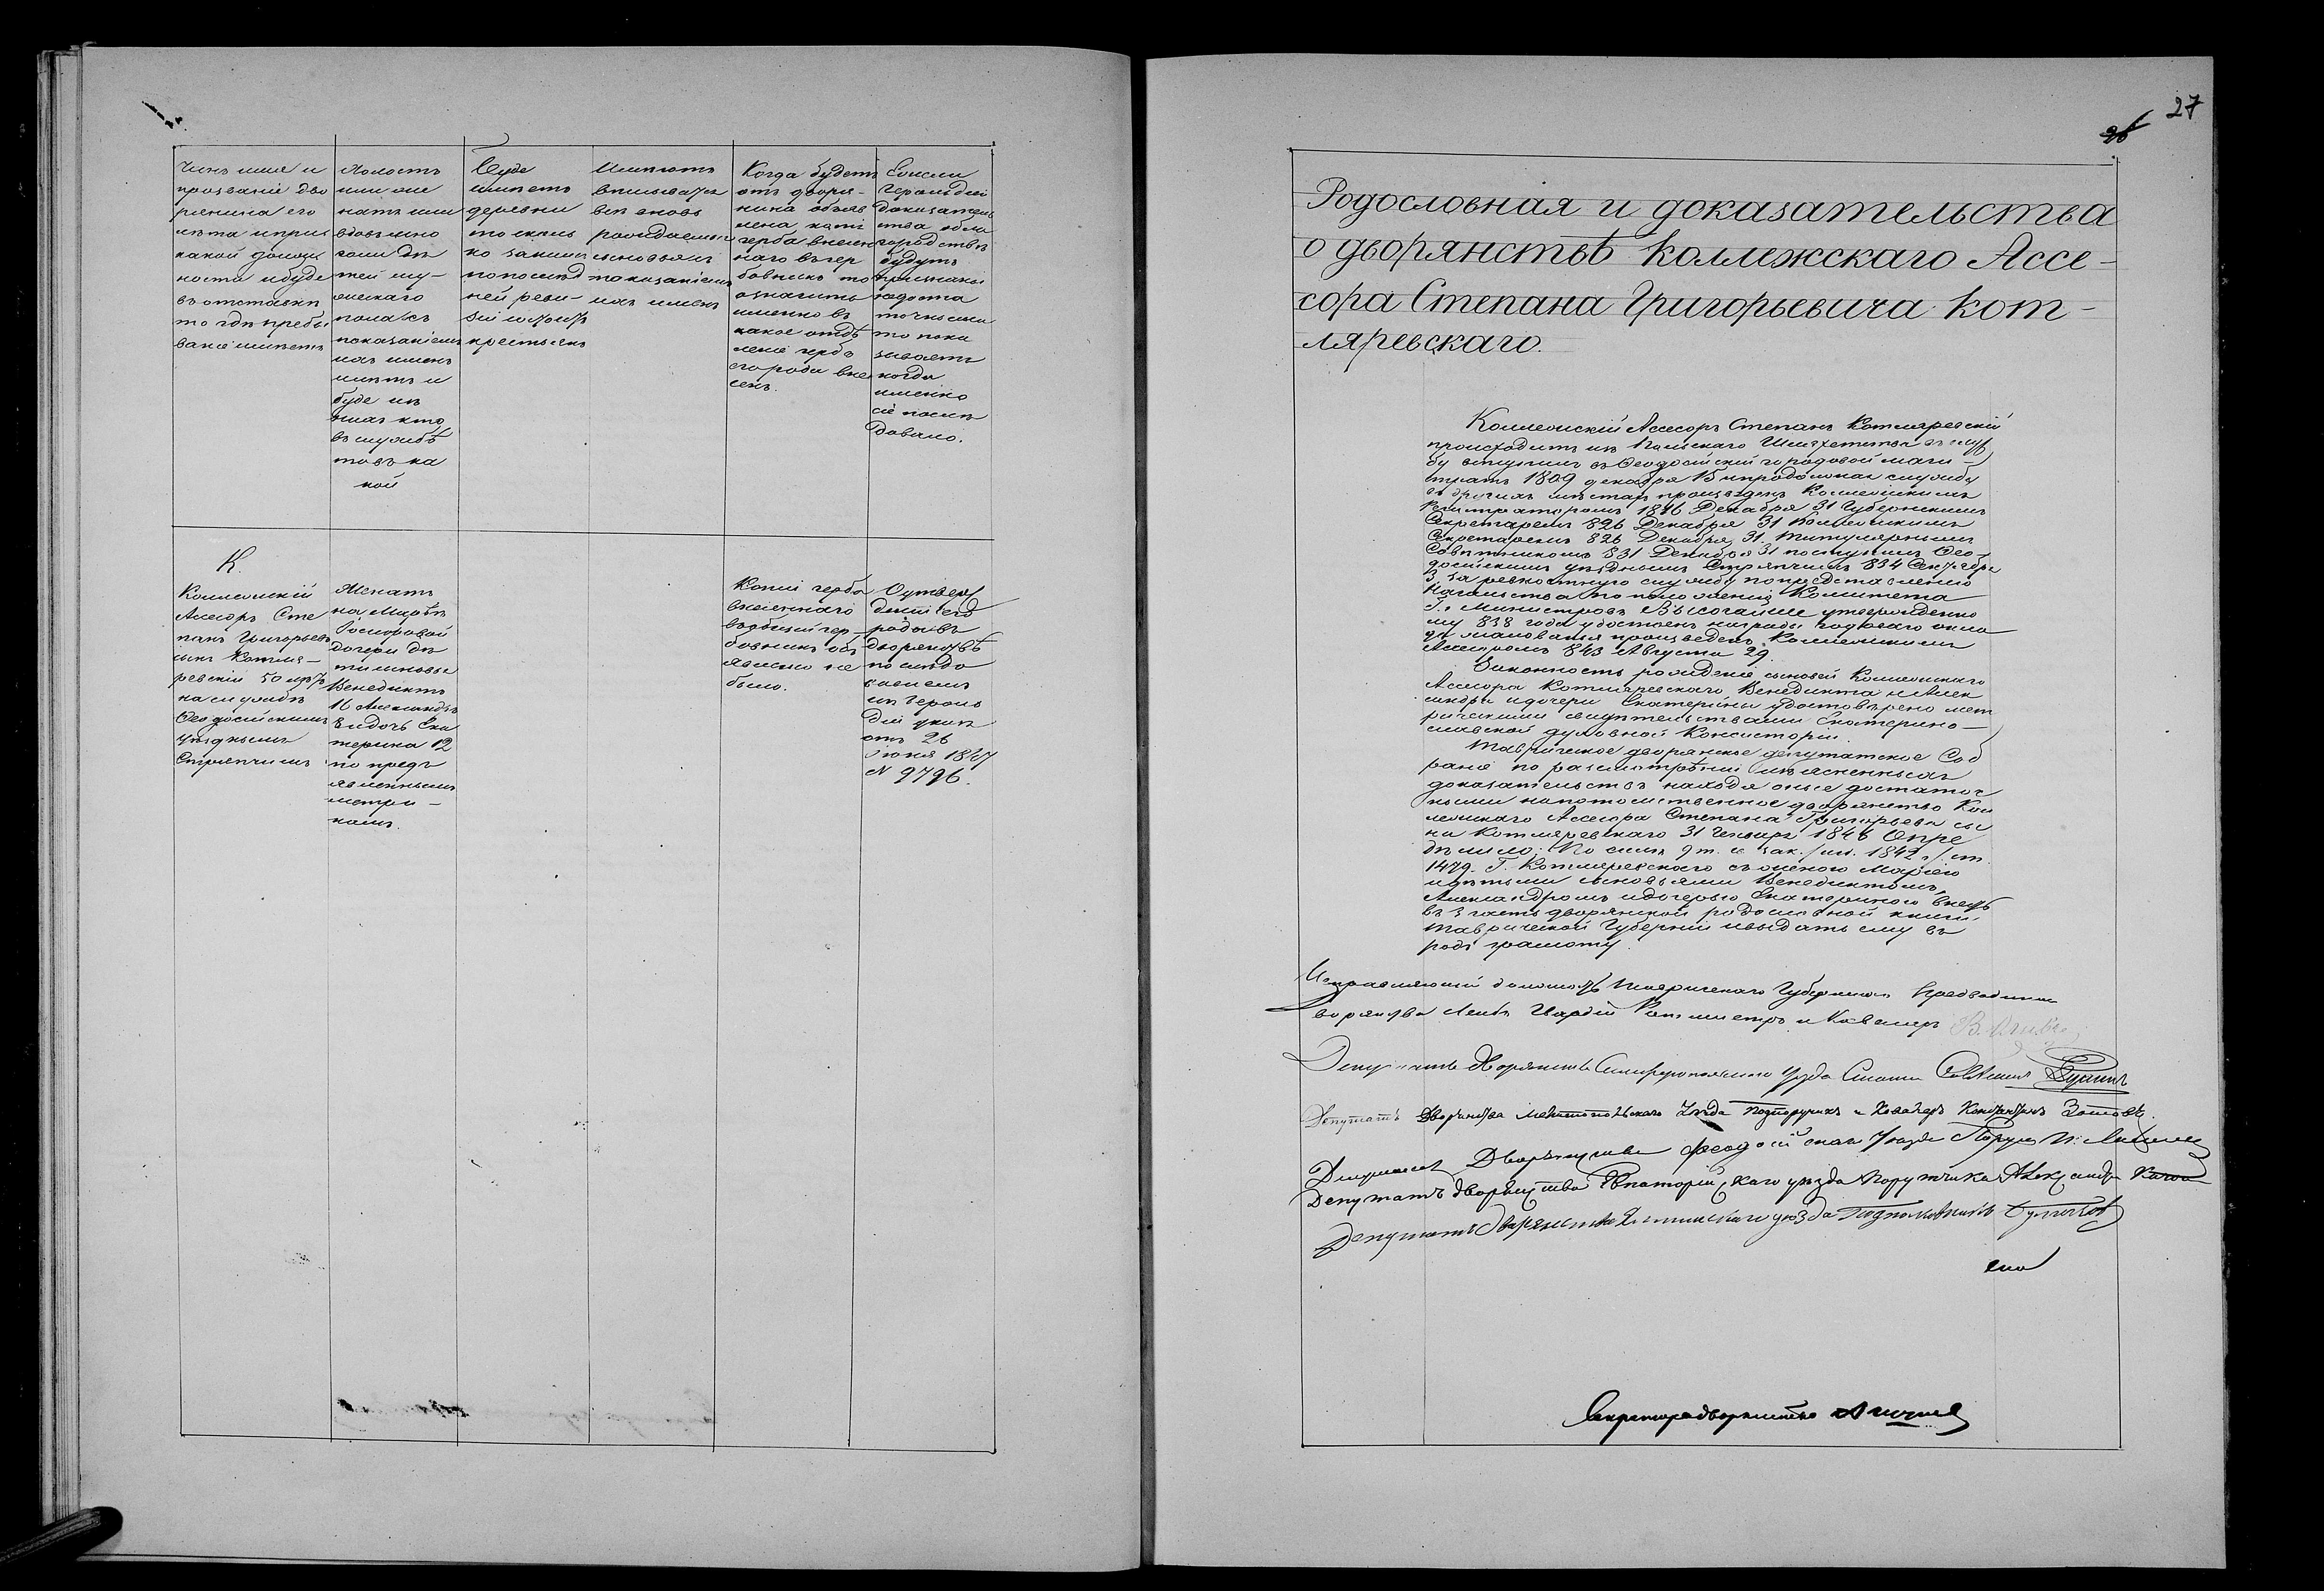 Чинъ имя и
прозваніе дво
рянина его
лѣта и при
какой долж
ности и буде
въ отставкѣ
то гдѣ пребы
ваніе имѣетъ
Холостъ
или же
натъ или
вдовъ и но
сколько дѣ
тей му-
жескаго
пола съ
показаніемъ
ихъ именъ
лѣтъ и
буде изъ
нихъ кто
въ службѣ
то въ ка
кой
Буде
имѣетъ
деревни
то сколь
ко за ними
по послѣд
ней реви-
зіи состоитъ
крестьянъ
Имѣютъ
вписываться
всѣ вновь
рождаемые
сыновья съ
показаніемъ
ихъ именъ
Когда будетъ
отъ дворя-
нина объяв
лена копія
герба внесен
наго въ гер
бовникъ то
означить
именно въ
какое отдѣ
леніе гербъ
его рода вне
сенъ.
Если
Герольдіи
доказатель
ства о бла
городствѣ
будутъ
признаны
достаточными
то пока
зывать
когда
именно
сіе послѣ
довало.
К.
Коллежскій
Ассесоръ Сте
панъ Григорьевъ
сынъ Котля-
ревскій 50 лѣтъ
на службѣ
Ѳеодосійскимъ
уѣзднымъ
Стряпчимъ
Женатъ
на Маріи
дочери дѣ
ти сыновья
Венедиктъ
16 Александръ
8 и дочь Ека
терина 12
по предъ
явленнымъ
метри-
камъ.
Копіи герба
внесеннаго
въ общій гер-
бовникъ объ
явлено не
было.
О утвер
жденіи его
рода въ
дворянствѣ
послѣдо
валъ
изъ Героль
діи указъ
отъ 26
Іюня 1847
№ 9796.
27
26
Родословная и доказательства
о дворянствѣ Коллежскаго Ассе-
сора Степана Григорьевича Кот-
ляревскаго.
Коллежскій Ассесоръ Степанъ Котляревскій
происходитъ изъ Польскаго Шляхетства въ служ
бу вступилъ въ Ѳеодосійскій городовой маги-
стратъ 1809 декабря 15 и продолжая службу
въ другихъ мѣстахъ произведенъ Коллежскимъ
Регистраторомъ 1816 Декабря 31 Губернскимъ
Секретаремъ 826 Декабря 31 Коллежскимъ
Секретаремъ 826 Декабря 31. Титулярнымъ
Совѣтникомъ 831 Декабря 31 поступилъ Ѳео-
досійскимъ уѣзднымъ Стряпчимъ 834 Сентября
3, за ревностную службу по представленію
Начальства по положенію Комитета
Г. Министровъ Высочайше утвержденно
му 838 года удостоенъ награды годоваго окла
да жалованья произведенъ Коллежскимъ
Ассесоромъ 843 Августа 29.
Законность рожденія сыновей Коллежскаго
Ассесора Котляревскаго Венедикта и Алек
сандра и дочери Екатерины удостовѣрено мет
рическими свидѣтельствами Екатерино-
славской духовной Консисторіи.
Таврическое дворянское депутатское Соб
раніе по разсмотрѣніи изъясненныхъ
доказательствъ находя оныя достаточ
ными на потомственное дворянство Кол
лежскаго Ассесора Степана Григорьева сы
на Котляревскаго 31 Генваря 1846 Опре
дѣлило: По силѣ 9 т. св. зак. /изд. 1842 г./ ст.
1479. Г. Котляревскаго съ женою Маріею
и дѣтьми сыновьями Венедиктомъ,
Александромъ и дочерью Екатериною внесть
въ 3 часть дворянской родословной книги
Таврической Губерніи и выдать ему въ
родъ грамоту.
Исправляющій должность Таврическаго Губернскаго Предводителя
Дворянства Лейбъ Гвардіи Ротмистръ и Кавалеръ
Депутатъ Дворянства Симферопольскаго Уѣзда Статскій Совѣтникъ
Депутатъ Дворянства Мелитопольскаго Уѣзда Подпоручикъ и Кавалеръ Константинъ Зотовъ
Депутатъ Дворянства Ѳеодосійскаго Уѣзда
Депутатъ дворянства Евпаторійскаго уѣзда Поручикъ Александръ
Депутатъ Дворянства Ялтинскаго уѣзда Подполковникъ
Секретарь дворянства